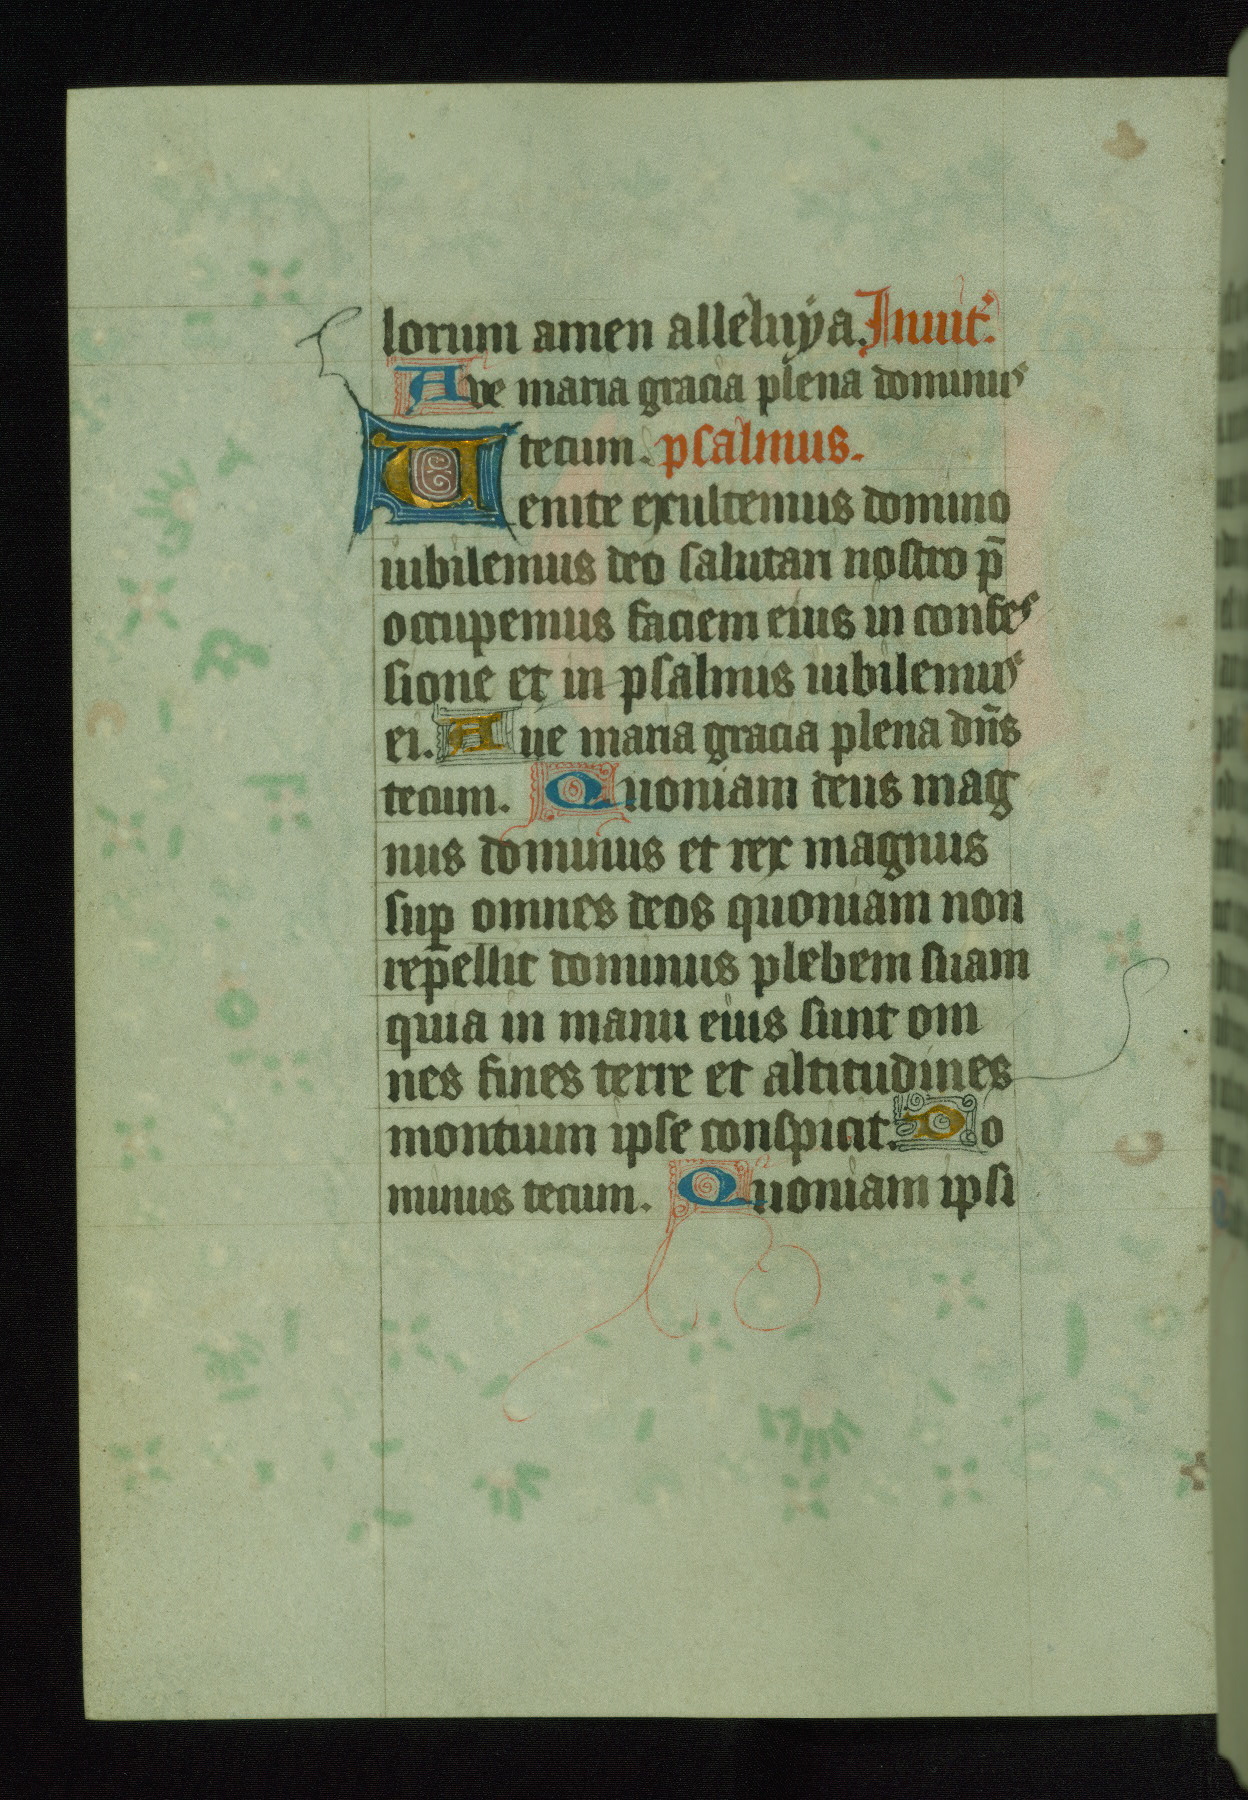 lorum amen alleluya. Inuit.
Aue maria gracia plena dominus
tecum. psalmus.
Uenite exultemus domino
iubilemus deo salutari nostro p̄
occupemus faciem eius in confes
sione et in psalmis iubilemus
ei. Aue maria gracia plena dn̄s
tecum. Quoniam deus mag
nus dominus et rex magnus
suꝑ omnes deos quoniam non
rep̄ellit dominus plebem suam
quia in manu eius sunt om
nes fines terre et altitudines
montium ipse conspicit. Do
minus tecum. Quoniam ipsi